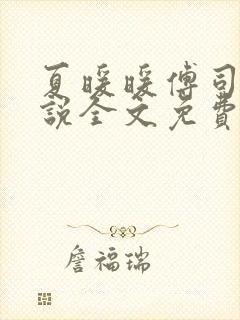 夏暖暖傅司
說全文免費
詹福瑞